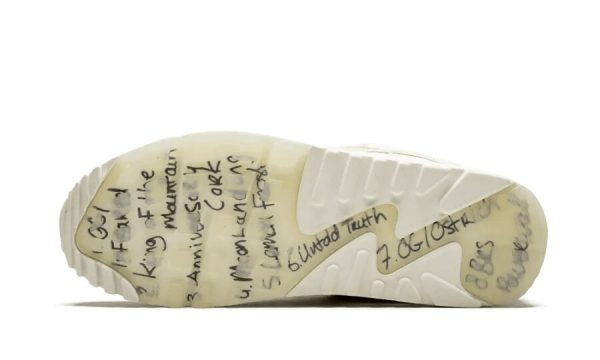 1. OG/
2 King of the
Mountain
3 Anniversary
Cork
4. Moon Landing
5
6. Untold Truth
7. OG/Ostrich
8